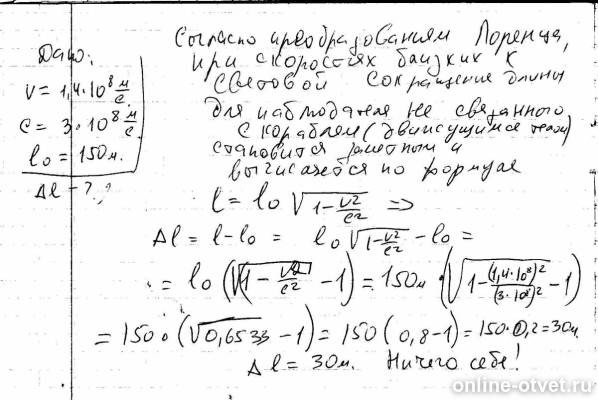 Дано:
v = 1,4·10⁸ м/с
c = 3·10⁸ м/с
l₀ = 150 м.
Δl – ?
Согласно преобразованиям Лоренца,
при скоростях близких к
световой сокращение длины
для наблюдателя не связанного
с кораблем (движущимся телом)
становится заметным и
вычисляется по формуле
l = l₀ √(1 – v²/c²) =>
Δl = l – l₀ = l₀ √(1 – v²/c²) – l₀ =
= l₀ (√(1 – v²/c²) – 1) = 150м · (√(1 – (1,4·10⁸)²/(3·10⁸)²) – 1)
= 150 · (√0,6533 – 1) = 150 (0,8 – 1) = 150·0,2 = 30м.
Δl = 30м. Ничего себе!
online-otvet.ru